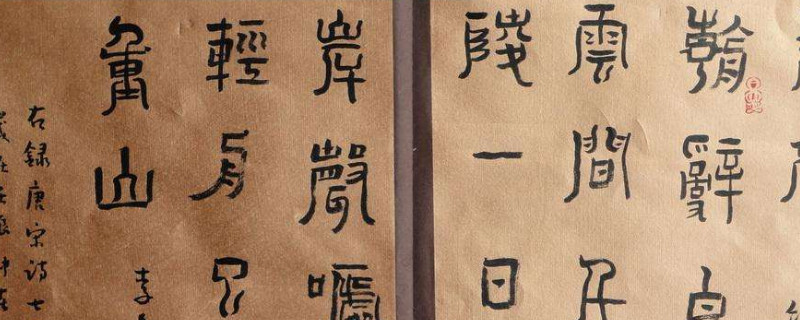 朝辭白
雲間千
陵一日
岸聲嗁
輕舟已
重山
李
右錄唐宋詩七